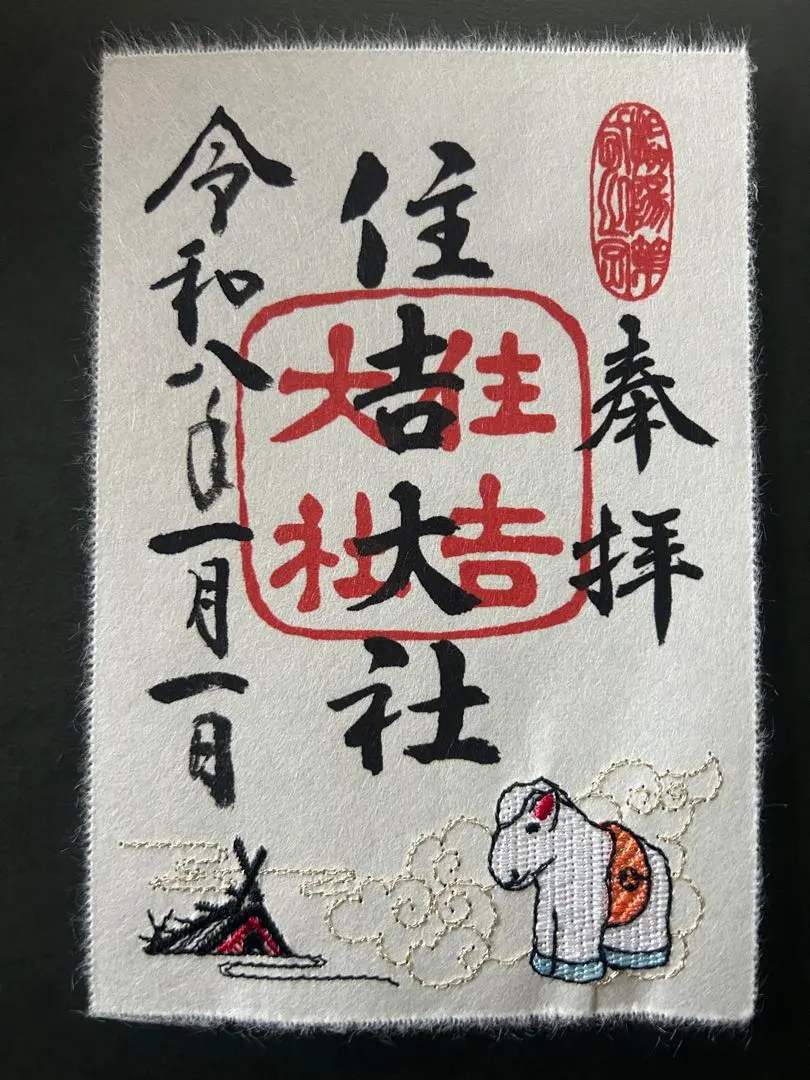 奉拝
住吉大社
住吉
大社
令和八年一月一日